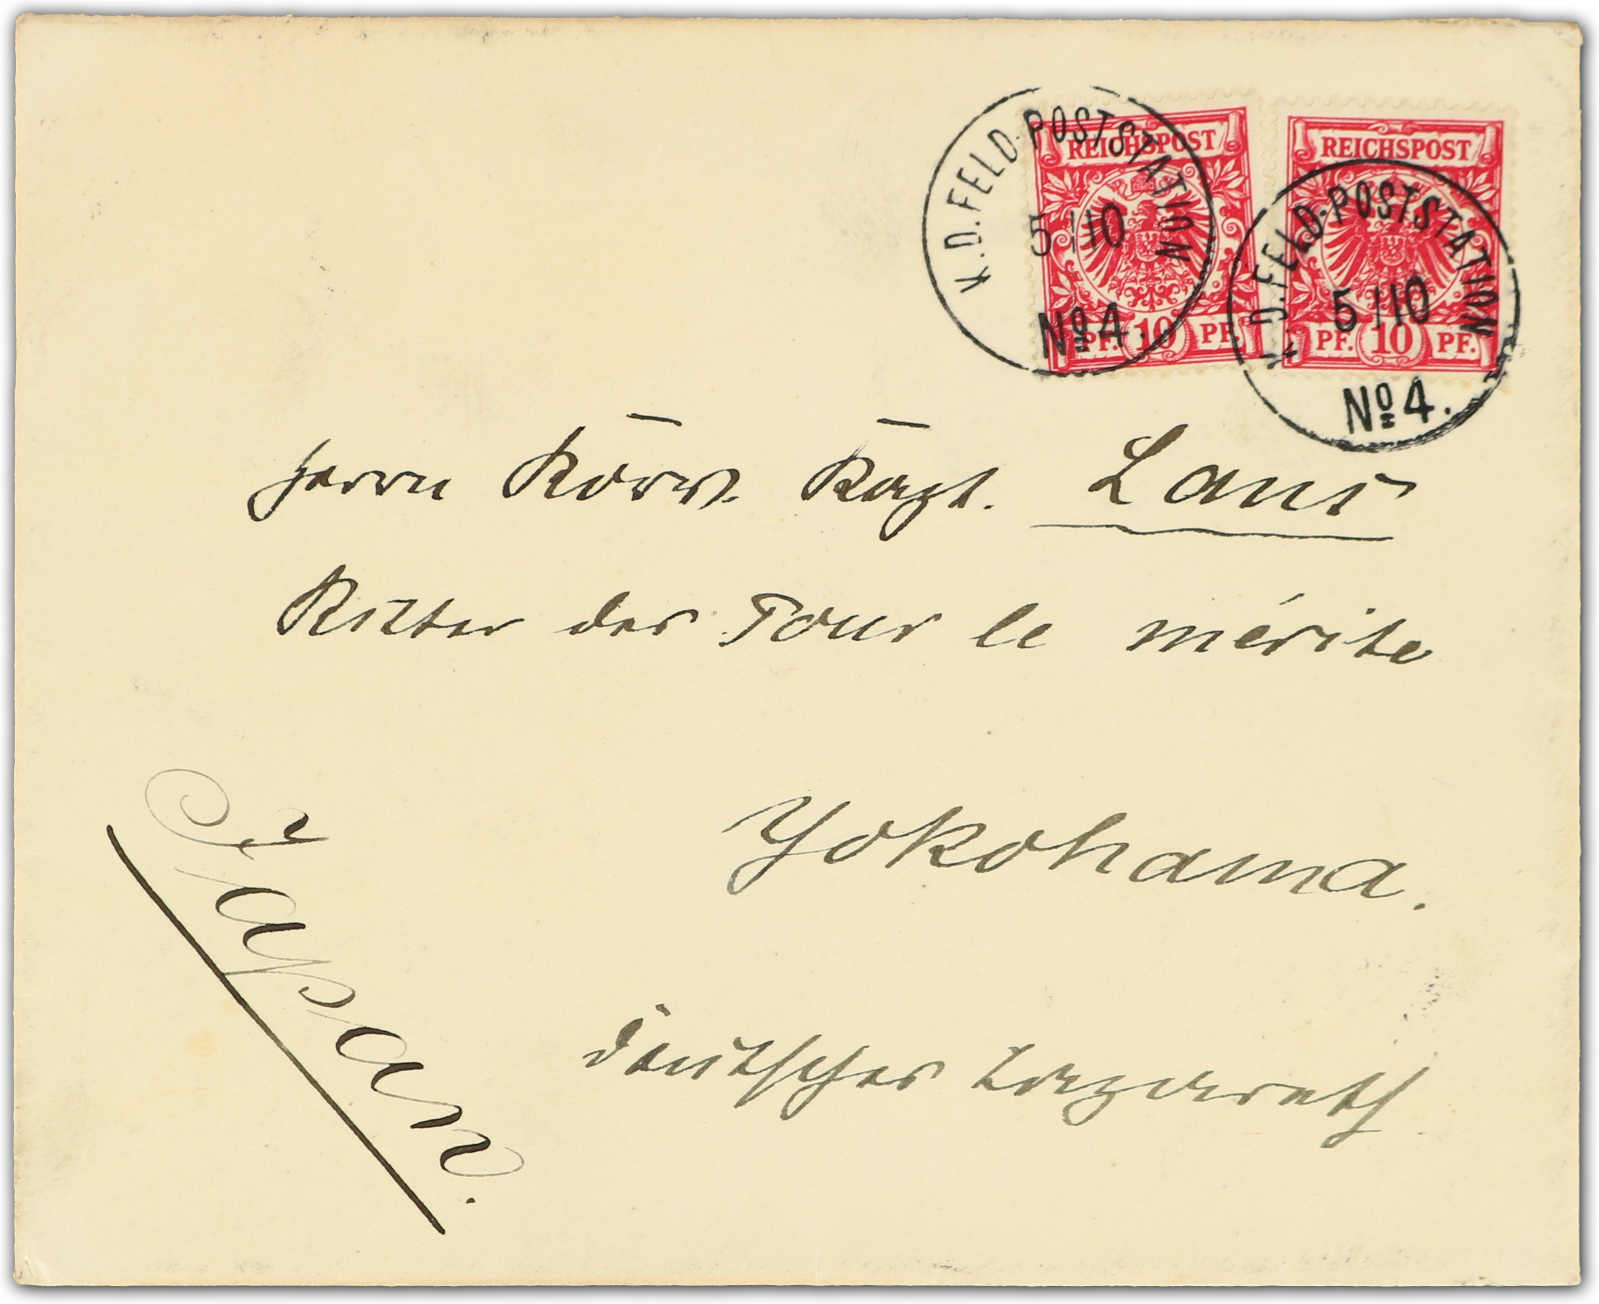 K.D.FELD-POSTSTATION
5/10
No 4.
REICHSPOST
PF. 10 PF.
K.D.FELD-POSTSTATION
5/10
No 4.
REICHSPOST
PF. 10 PF.
Herrn Korv. Kapt. Lans
Ritter des Pour le mérite
Yokohama.
Deutsches Lazareth
Japan.